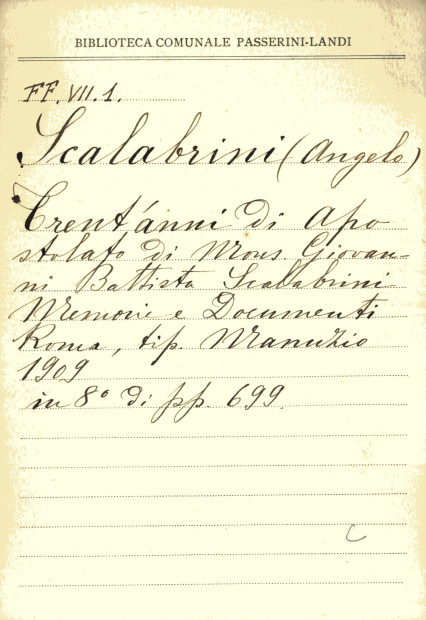 BIBLIOTECA COMUNALE PASSERINI-LANDI
FF. VII. 1.
Scalabrini (Angelo)
Trent'anni di Apo
stolato di Mons. Giovan-
ni Battista Scalabrini
Memorie e Documenti
Roma, tip. Manuzio
1909
in 8° di pp. 699.
C